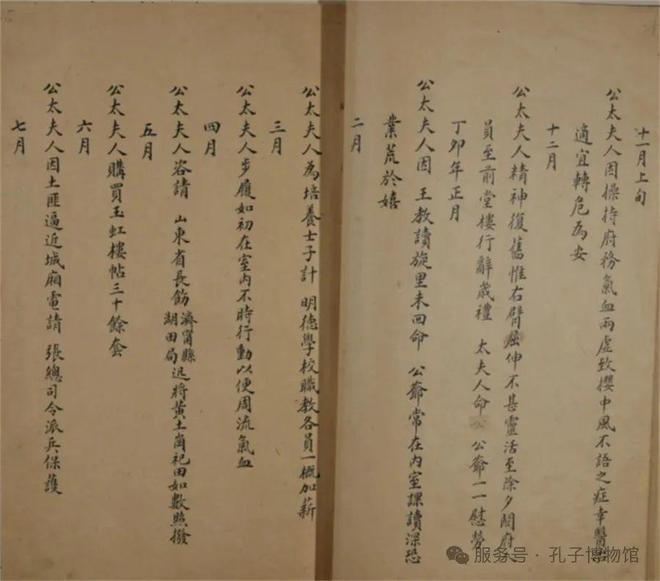 十一月上旬
公太夫人因操持府務氣血兩虛致攖中風不語之症幸醫治
適宜轉危為安
十二月
公太夫人精神復舊惟右臂屈伸不甚靈活至除夕闔府人
員至前堂樓行辭歲禮 太夫人命 公爺一一慰勞
丁卯年正月
公太夫人因 王教讀旋里未回命 公爺常在內室課讀深恐
業荒於嬉
二月
公太夫人為培養士子計 明德學校職教各員一概加薪
三月
公太夫人步履如初在室內不時行動以便周流氣血
四月
公太夫人咨請 山東省長飭 濟甯縣 湖田局 迅將黃土崗祀田如數照撥
五月
公太夫人購買玉虹樓帖三十餘套
六月
公太夫人因土匪逼近城廂電請 張總司令派兵保護
七月
服务号 · 孔子博物馆